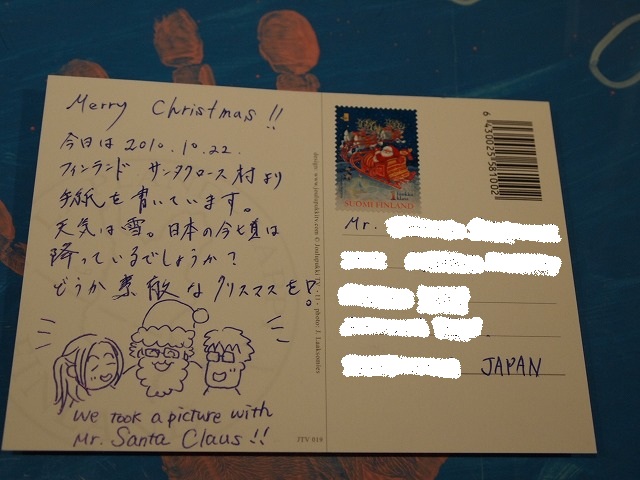 Merry Christmas!!
今日は 2010.10.22.
フィンランド サンタクロース村より
手紙を書いています。
天気は雪。日本の今頃は
降っているでしょうか？
どうか素敵なクリスマスを!
We took a picture with
Mr. Santa Claus!!
JTV 019
design: www.joulupukkitv.com © Joulupukki TV
photo: J. Laaksomies
1
SUOMI FINLAND
6430025458100
Mr.
JAPAN